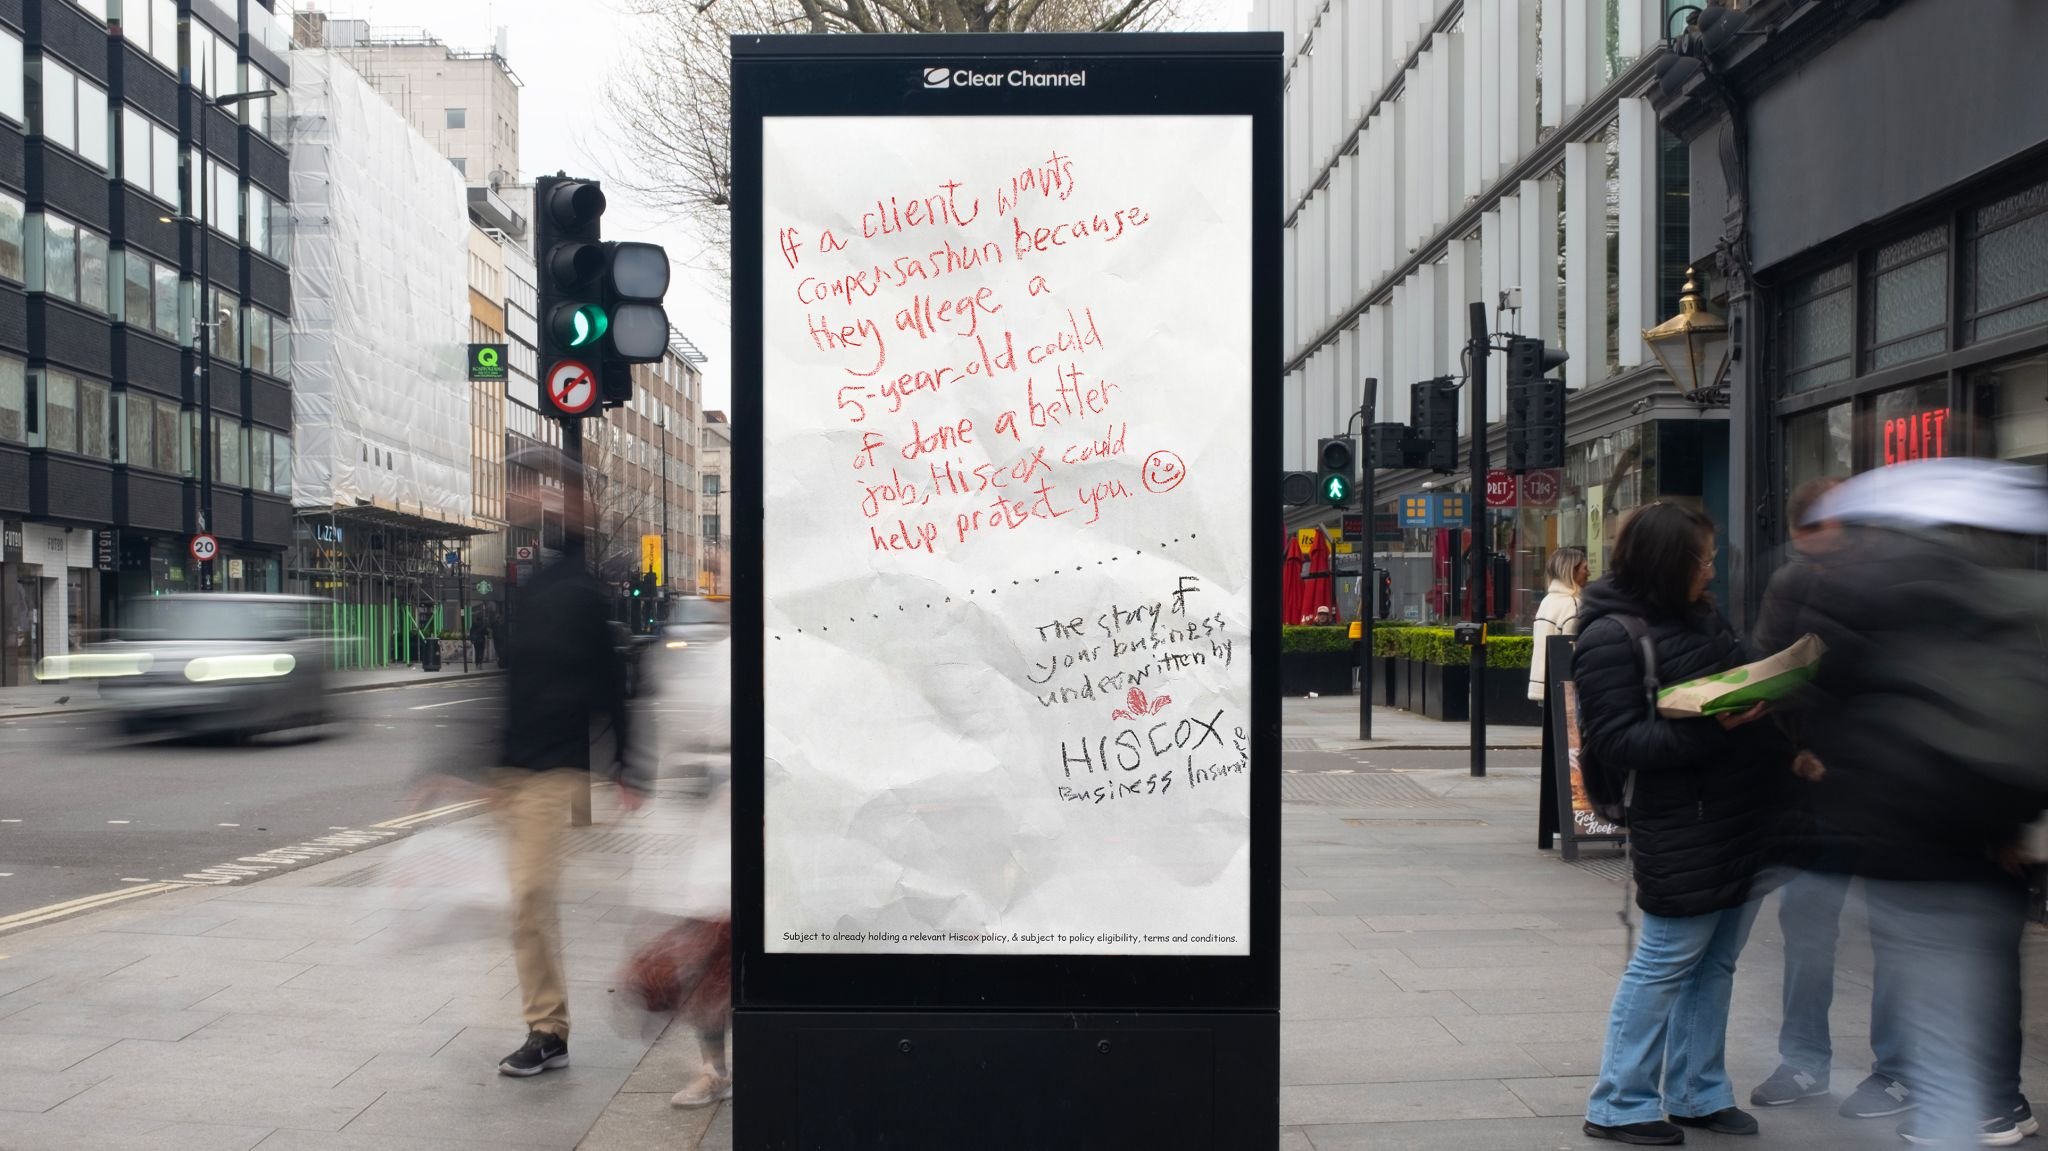 Clear Channel
If a client wants
compensashun because
they allege a
5-year-old could
of done a better
job, Hiscox could
help protect you.
The story of
your business
underwritten by
HISCOX
Business Insurance
Subject to already holding a relevant Hiscox policy, & subject to policy eligibility, terms and conditions.
20
FUTON
FUTON
Q
SCAFFOLDING
CRAFT
PRET
its
Got
Beef?